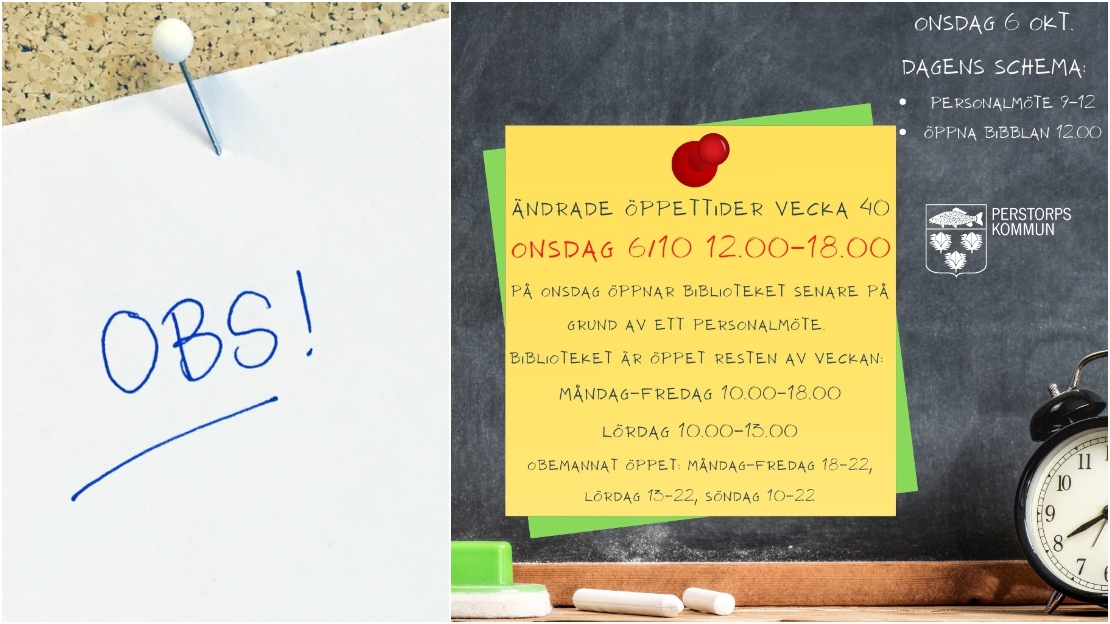 OBS!
ONSDAG 6 OKT.
DAGENS SCHEMA:
• PERSONALMÖTE 9-12
• ÖPPNA BIBBLAN 12.00
PERSTORPS
KOMMUN
ÄNDRADE ÖPPETTIDER VECKA 40
ONSDAG 6/10 12.00-18.00
PÅ ONSDAG ÖPPNAR BIBLIOTEKET SENARE PÅ
GRUND AV ETT PERSONALMÖTE.
BIBLIOTEKET ÄR ÖPPET RESTEN AV VECKAN:
MÅNDAG-FREDAG 10.00-18.00
LÖRDAG 10.00-13.00
OBEMANNAT ÖPPET: MÅNDAG-FREDAG 18-22,
LÖRDAG 13-22, SÖNDAG 10-22
11
10
9
8
7